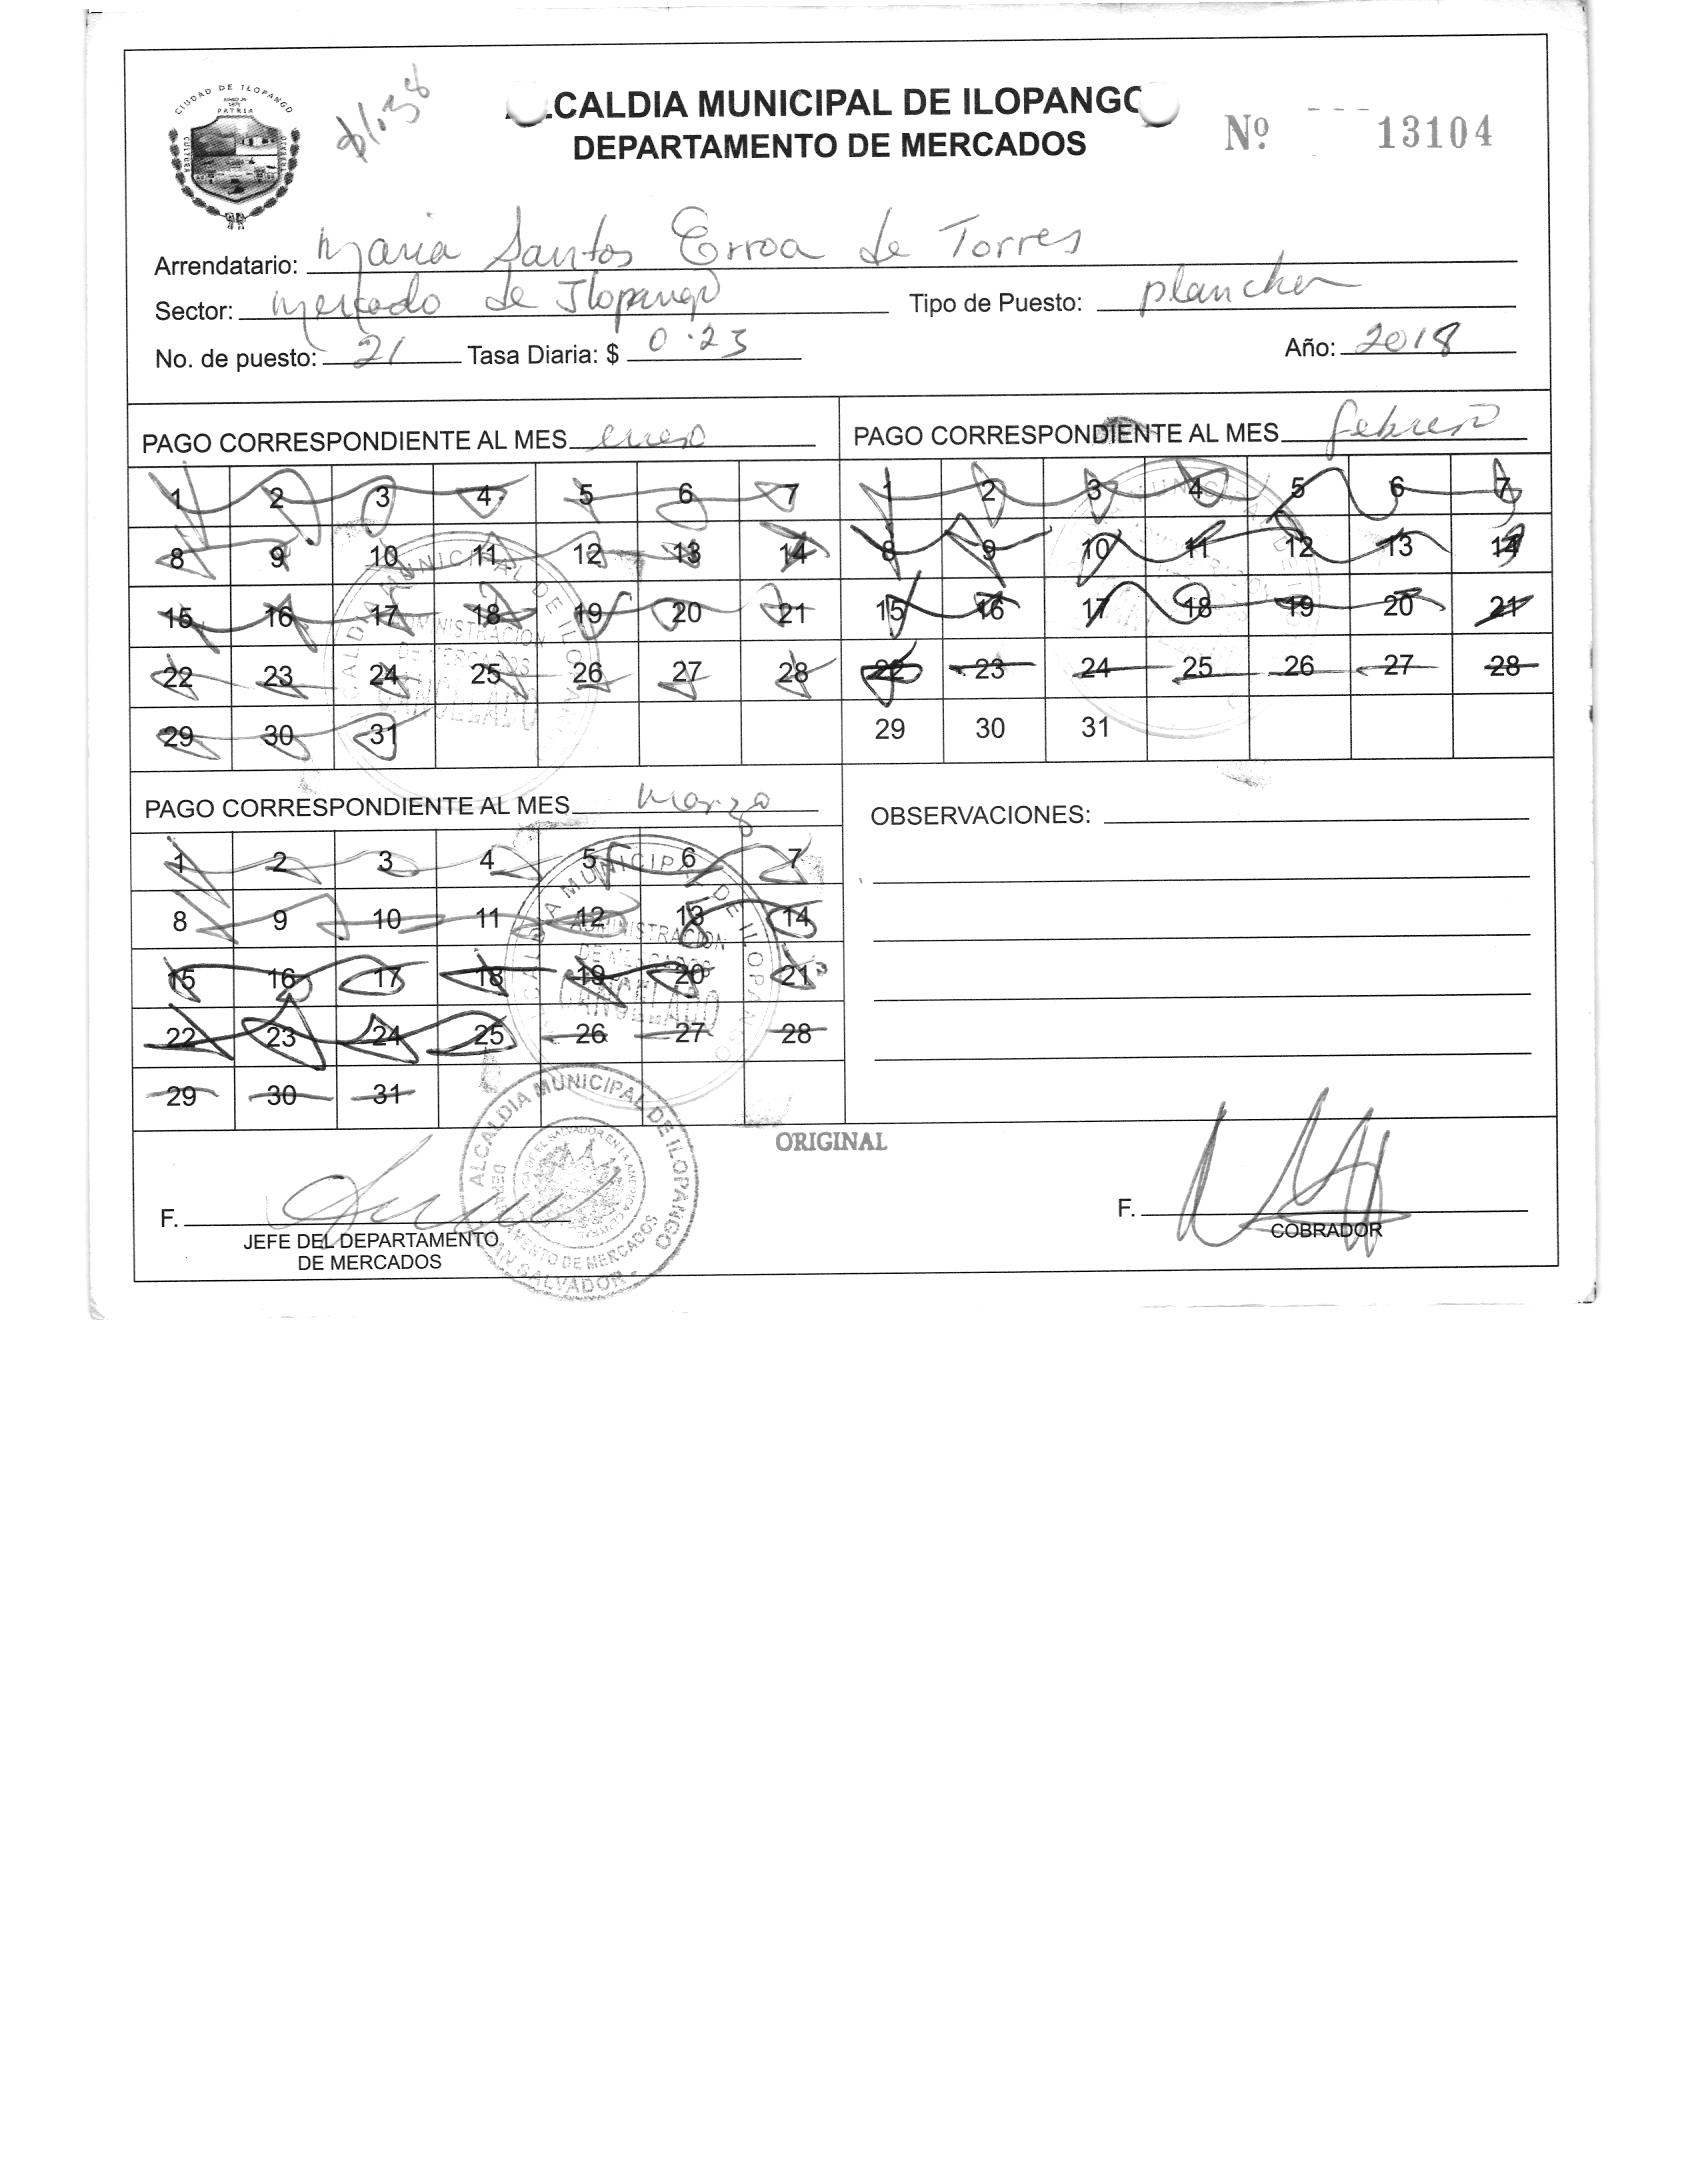 CIUDAD DE ILOPANGO
PATRIA
CULTURA
ALCALDIA MUNICIPAL DE ILOPANGO
DEPARTAMENTO DE MERCADOS
Nº 13104
Arrendatario: Maria Santos Erroa de Torres
Sector: Mercado de Ilopango Tipo de Puesto:
No. de puesto: 21 Tasa Diaria: $ 0.23 Año: 2018
PAGO CORRESPONDIENTE AL MES enero
1 2 3 4 5 6 7
8 9 10 11 12 13 14
15 16 17 18 19 20 21
22 23 24 25 26 27 28
29 30 31
ALCALDIA MUNICIPAL DE ILOPANGO
ADMINISTRACION
DE MERCADOS
CANCELADO
PAGO CORRESPONDIENTE AL MES febrero
1 2 3 4 5 6 7
8 9 10 11 12 13 14
15 16 17 18 19 20 21
22 23 24 25 26 27 28
29 30 31
PAGO CORRESPONDIENTE AL MES marzo
1 2 3 4 5 6 7
8 9 10 11 12 13 14
15 16 17 18 19 20 21
22 23 24 25 26 27 28
29 30 31
ALCALDIA MUNICIPAL DE ILOPANGO
ADMINISTRACION
DE MERCADOS
CANCELADO
OBSERVACIONES:
ORIGINAL
F.
JEFE DEL DEPARTAMENTO
DE MERCADOS
ALCALDIA MUNICIPAL DE ILOPANGO
DEPARTAMENTO DE MERCADOS
SAN SALVADOR
F.
COBRADOR